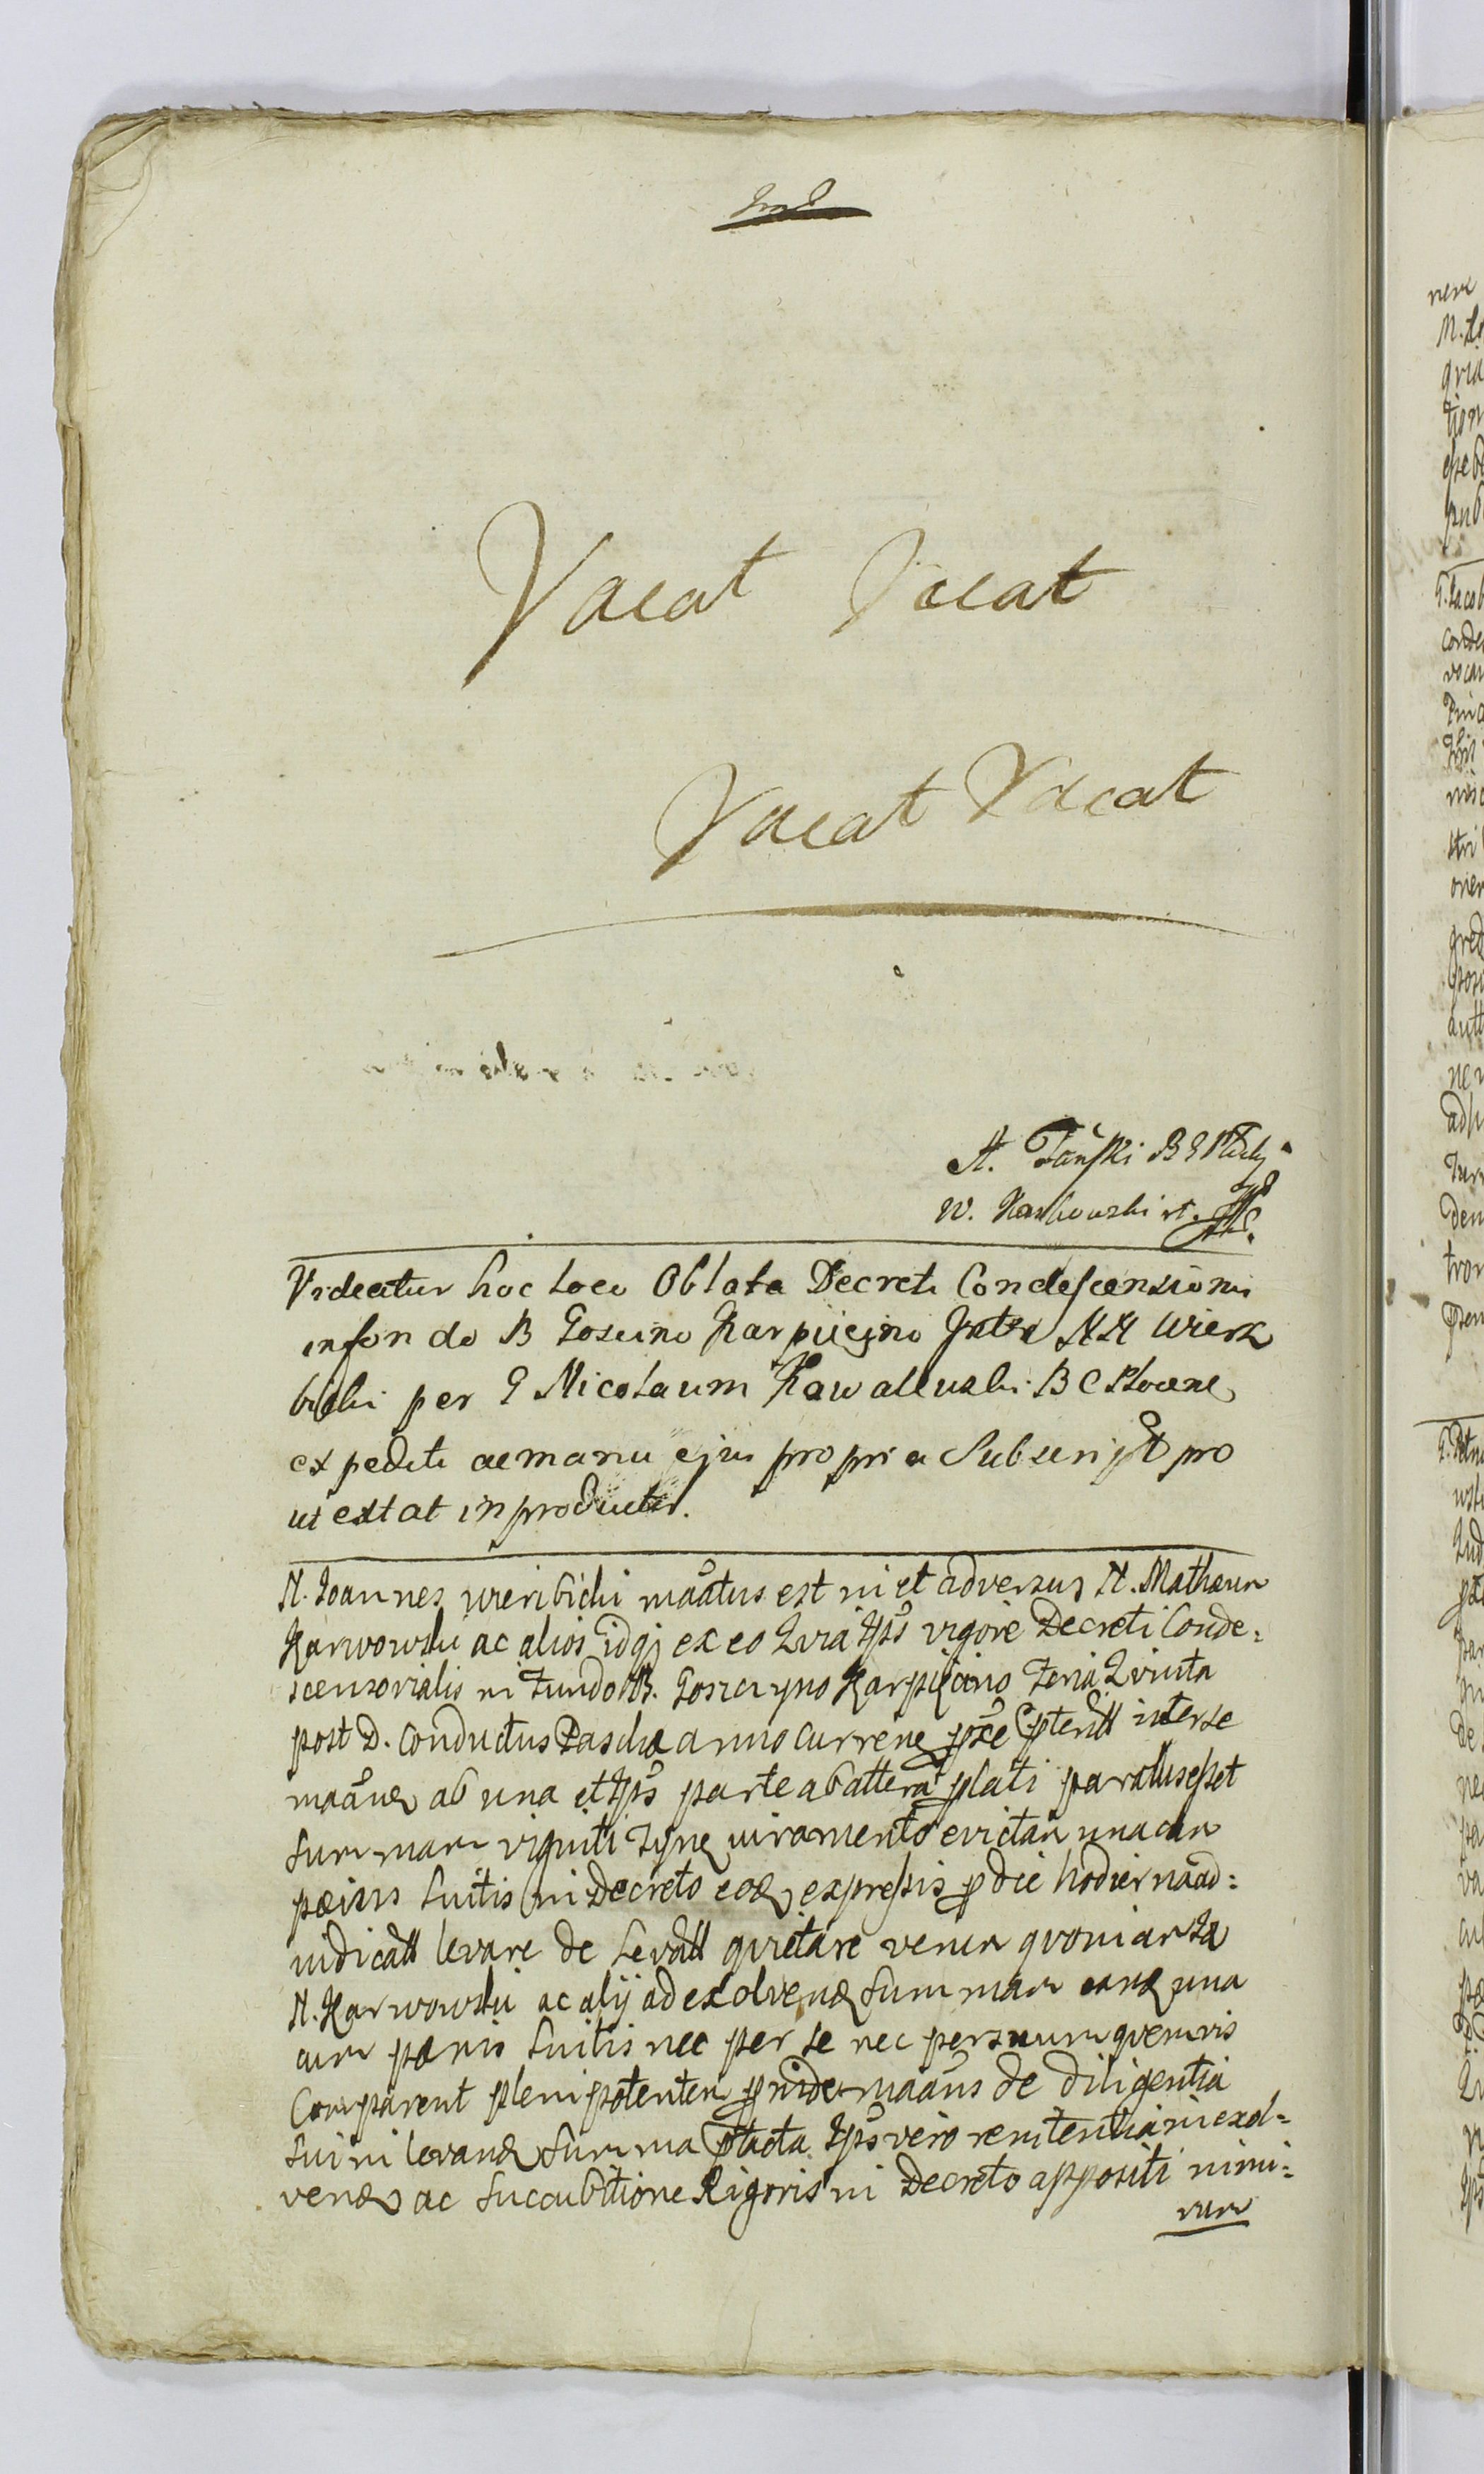 Vacat Vacat
Vacat Vacat
A. Tański B
W.
Videatur hoc loco Oblata Decreti Condescensionis
in fundo B Goscino Karpiiejno Inter NN Wierz
bicki per G Nicolaum Kawalewski B C Plocens
expediti ac manu ejus propria Subscript pro
ut extat in producter.
N. Joannes wierzbicki maãtus est in et adversus N. Mathæum
Karwowski ac alios idqz ex eo Quia Ips vigore Decreti Conde=
scensorialis in Fundo B. Gosczyno Karpiiejno Feria Quinta
post D. Conductus Paschæ anno currene inter se
ab una et Ips parte ab altera plati paratus esset
Summam viginti juramento evictam una cum
pœnis Luitis in Decreto eod expressis p die hodierna ad=
judicatt levare de Levatt quietare verum quoniam
N. Karwowski ac alij ad exolvend Summam eand una
cum pœnis Luitis nec per se nec per suum quemvis
Comparent plenipotentem proinde maãns de diligentia
sui in levand Summa ptacta Ips vero renitentia in exol=
vend ac Succubitione Rigoris in Decreto appositi nimi=
rum